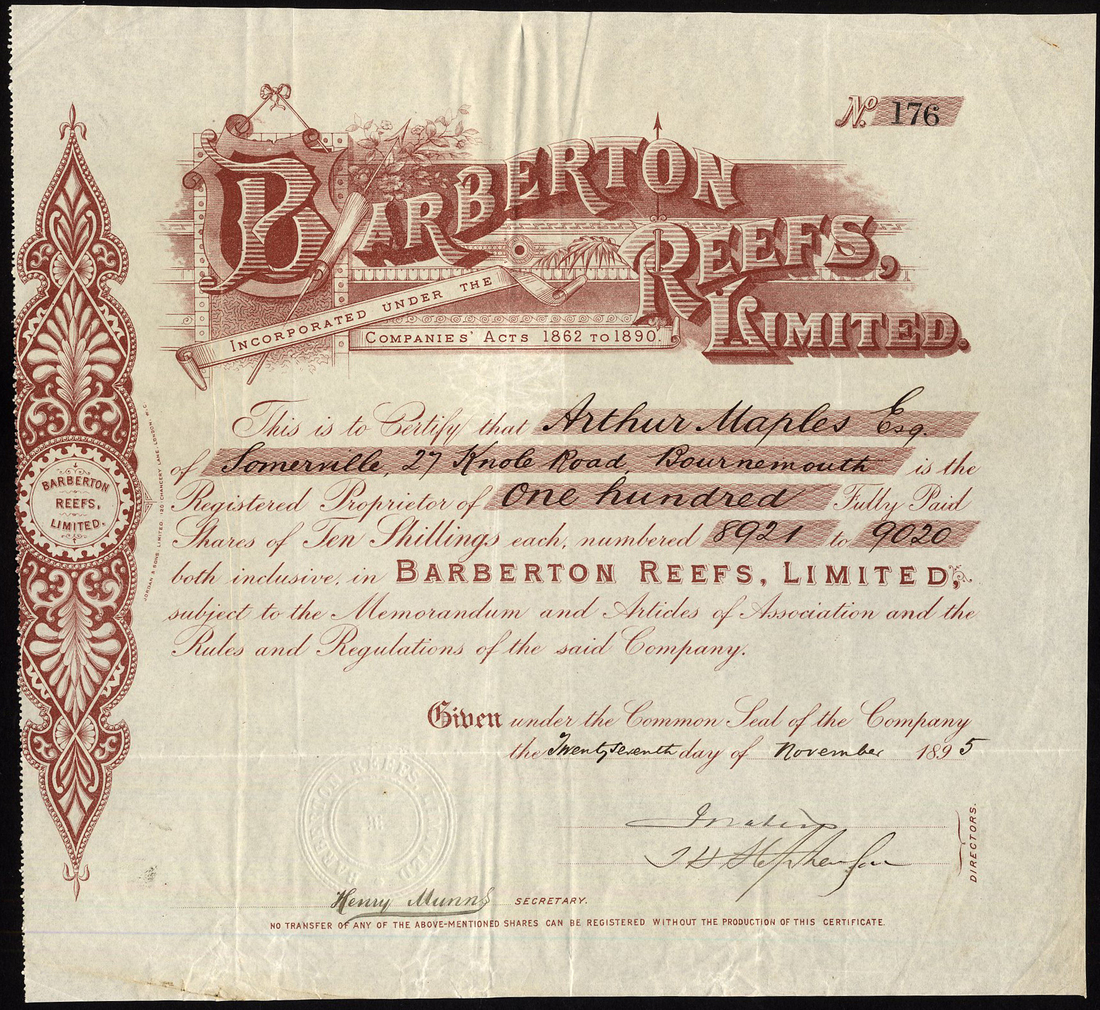 No. 176
BARBERTON
REEFS,
LIMITED.
INCORPORATED UNDER THE
COMPANIES' ACTS 1862 TO 1890.
This is to Certify that Arthur Maples Esq.
of Somerville, 27 Knole Road, Bournemouth is the
Registered Proprietor of One hundred Fully Paid
Shares of Ten Shillings each, numbered 8921 to 9020
both inclusive, in BARBERTON REEFS, LIMITED,
subject to the Memorandum and Articles of Association and the
Rules and Regulations of the said Company.
Given under the Common Seal of the Company
the Twenty seventh day of November 1895
DIRECTORS.
Henry Munns SECRETARY.
NO TRANSFER OF ANY OF THE ABOVE-MENTIONED SHARES CAN BE REGISTERED WITHOUT THE PRODUCTION OF THIS CERTIFICATE.
BARBERTON
REEFS,
LIMITED.
JORDAN & SONS, LIMITED, 120 CHANCERY LANE, LONDON, W.C.
BARBERTON REEFS LIMITED